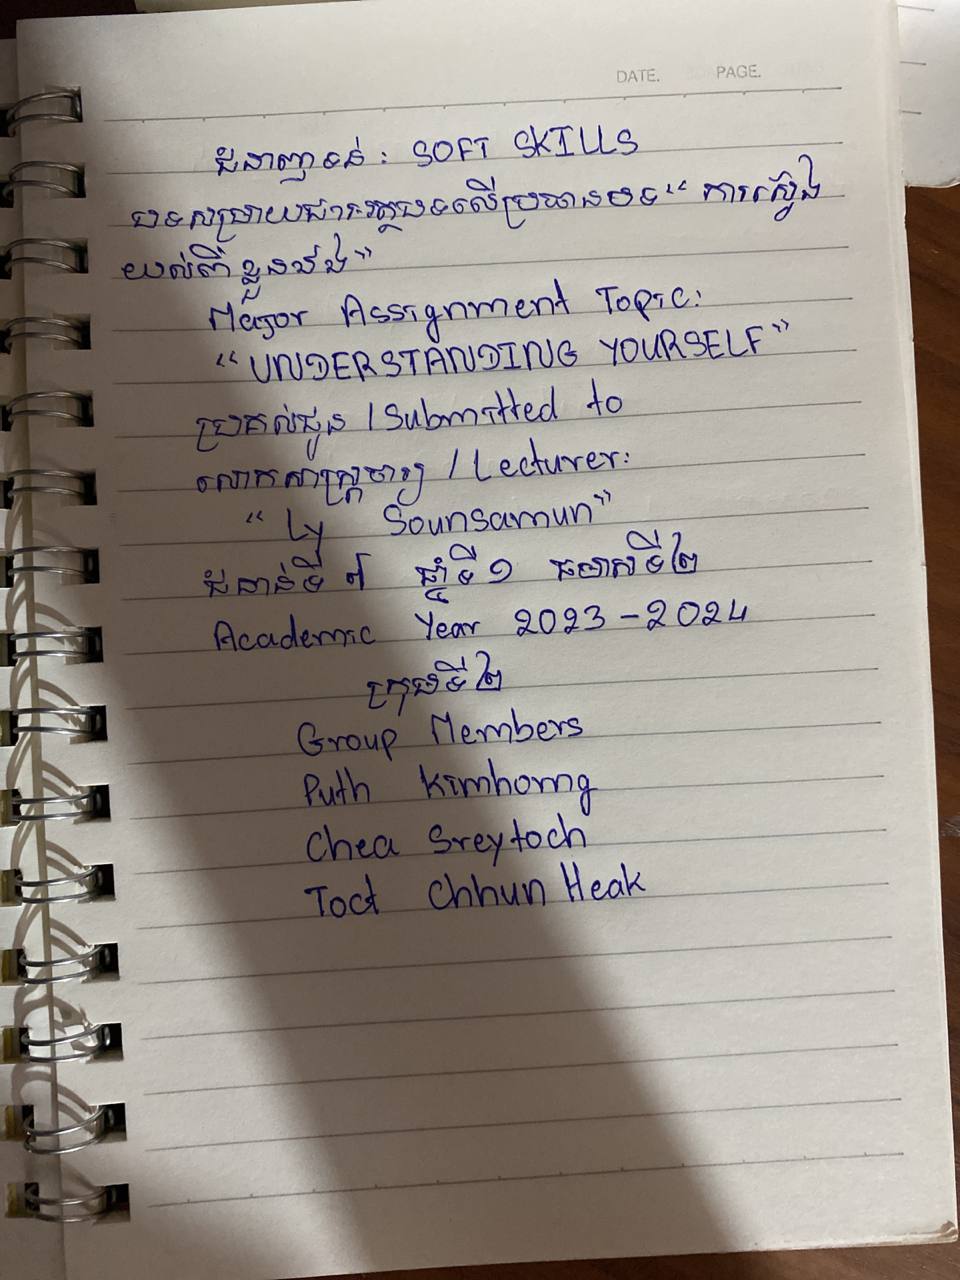 DATE. PAGE.
ជំនាញទន់ : SOFT SKILLS
បទសម្រាយជាអត្ថបទលើប្រធានបទ“ ការស្វែង
យល់ពី ខ្លួនឯង”
Major Assignment Topic:
“UNDERSTANDING YOURSELF”
ប្រគល់ជូន /Submitted to
លោកសាស្ត្រចារ្យ / Lecturer:
“ Ly Sounsamun”
ជំនាន់ទី ៧ ឆ្នាំទី ១ ឆមាសទី២
Academic Year 2023-2024
ក្រុមទី ២
Group Members
Puth Kimhorng
Chea Sreytoch
Toct Chhun Heak